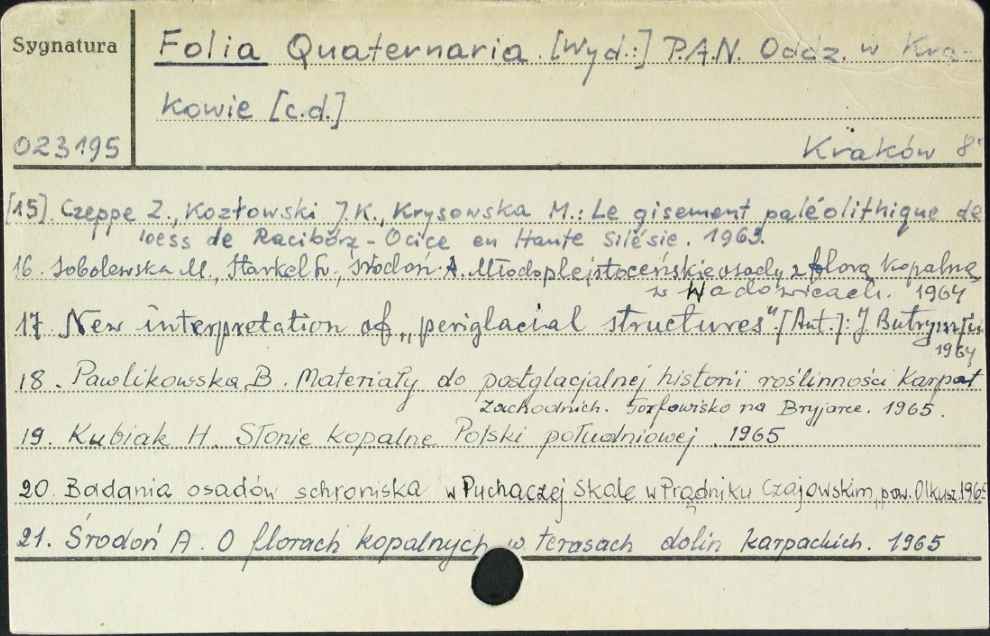 Sygnatura
Folia Quaternaria. [Wyd.:] P.A.N. Oddz. w Kra-
kowie [c.d.]
023195
Kraków 8°
[15]. Czeppe Z., Kozłowski J.K., Krysowska M.: Le gisement paléolithique de
loess de Racibórz - Ocice en Haute Silésie. 1963.
16. Sobolewska M., Starkel L., Środoń A. Młodoplejstoceńskie osady z florą kopalną
w Wadowicach. 1964
17 New interpretation of „periglacial structures". [Aut.]: J. Butrym [i
1964
18. Pawlikowska B. Materiały do postglacjalnej historii roślinności Karpat
Zachodnich. Torfowisko na Bryjarce. 1965.
19. Kubiak H. Słonie kopalne Polski południowej. 1965
20. Badania osadów schroniska w Puchaczej Skale w Prądniku Czajowskim, pow. Olkusz 1965
21. Środoń A. O florach kopalnych w terasach dolin karpackich. 1965